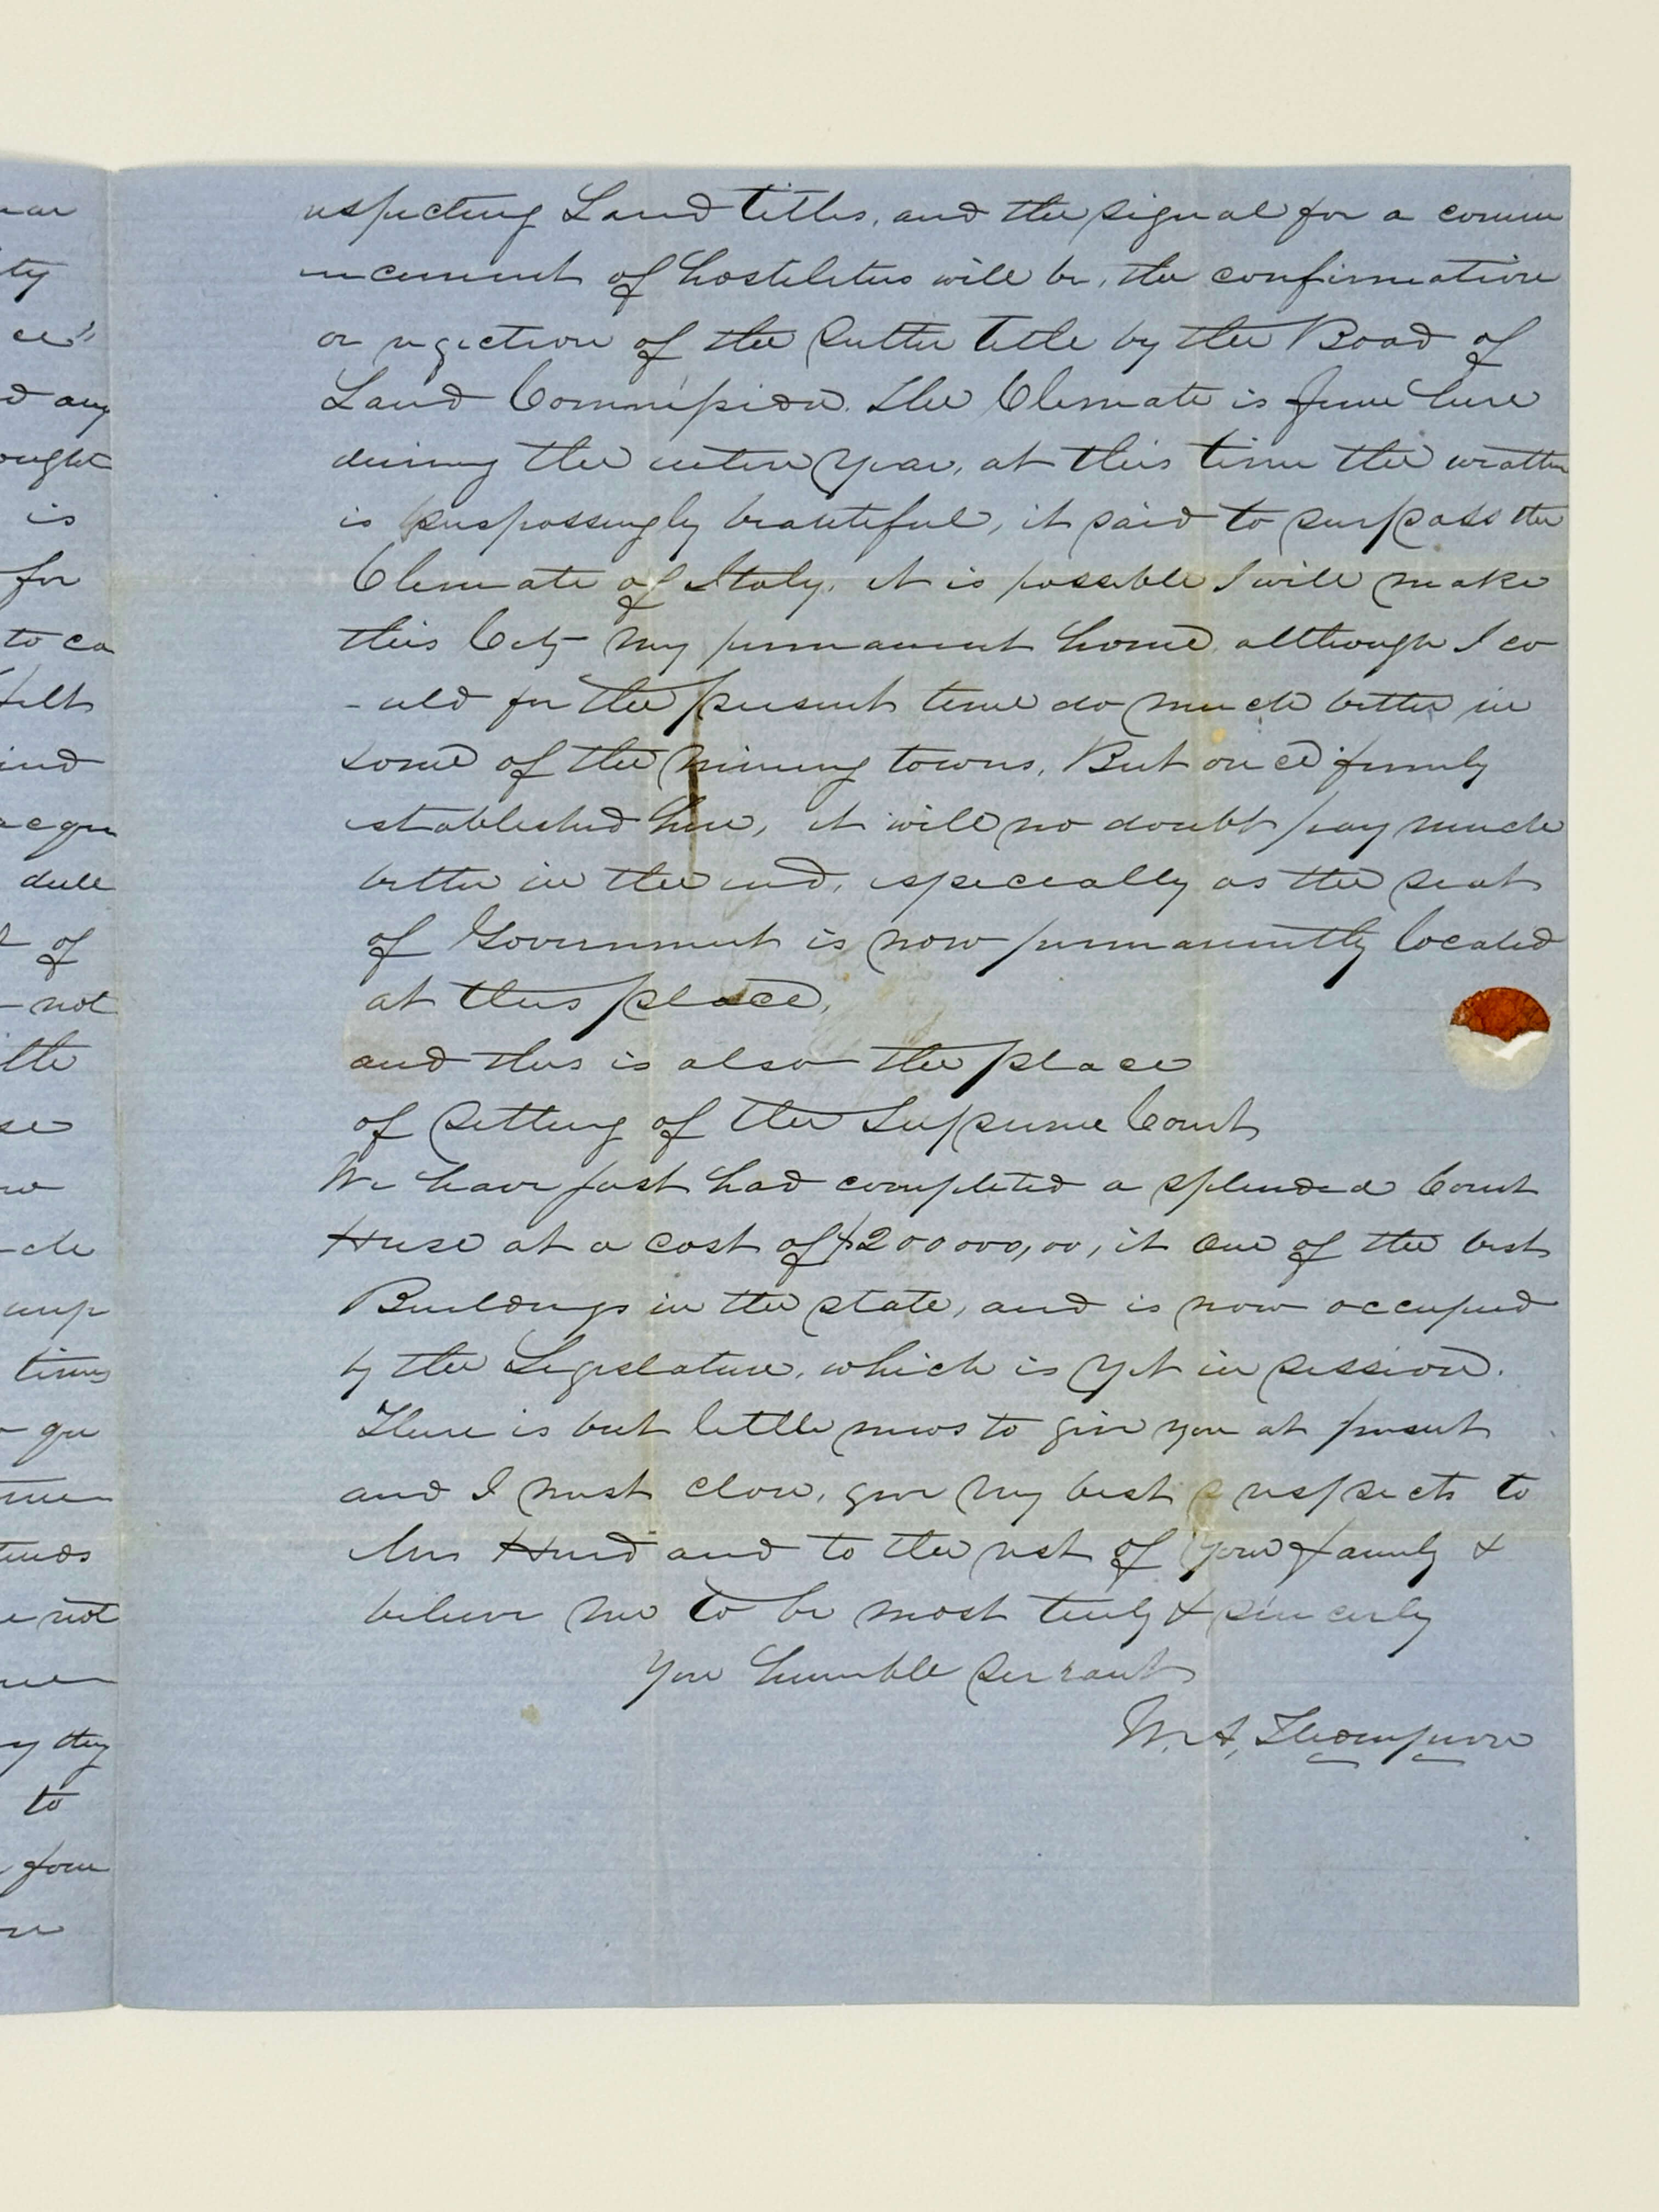 respecting Land titles, and the signal for a comm
encement of hostilities will be, the confirmation
or rejection of the Sutter title by the Boad of
Land Commission. The Climate is fine here
during the entire year, at this time the weather
is surpassingly beautiful, it said to surpass the
Climate of Italy. it is possible I will make
this City my permanent home. although I co
-uld for the present time do much better in
some of the mining towns. But once firmly
established here, it will no doubt pay much
better in the end, especially as the seat
of Government is now permanently located
at this place,
and this is also the place
of setting of the Supreme Court
We have just had completed a splended Court
House at a cost of $200000,00, it one of the best
Buildings in the state, and is now occupied
by the Legislature, which is yet in session.
There is but little news to give you at present
and I must close, give my best respects to
Mrs Hurd and to the rest of your family &
believe me to be most truly & sincerely
your humble servant
M. A. Thompson
ty
d any
ought
is
for
to co
felt
ind
dull
of
not
se
times
not
they
to